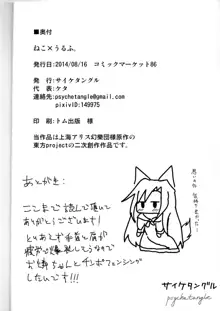 ■奥付
ねこ×うるふ。
発行日：2014/08/16 コミックマーケット86
発行：サイケタングル
代表：ケタ
連絡先：psychotangle@gmail.com
pixivID:149975
印刷：トム出版 様
当作品は上海アリス幻樂団様原作の
東方projectの二次創作作品です。
あとがき：
ここまで読んで頂いて
ありがとうございます！
とりあえず
お燐ちゃんとチンポフェンシング
したいです!!!
サイケタングル
psychotangle